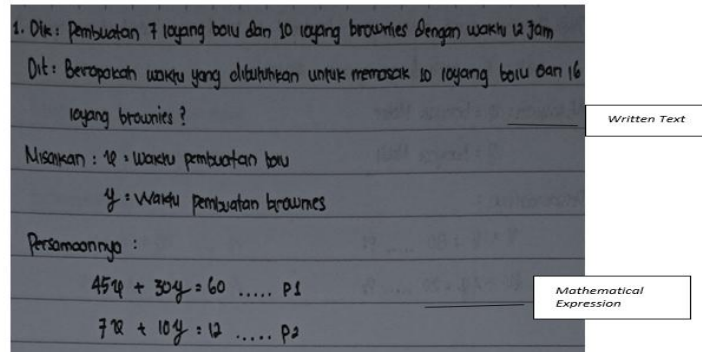 1. Dik : Pembuatan 7 loyang bolu dan 10 loyang brownies dengan waktu 12 Jam
Dit : Berapakah waktu yang dibutuhkan untuk memasak 10 loyang bolu dan 16
loyang brownies ?
Written Text
Misalkan : x = Waktu pembuatan bolu
y = Waktu pembuatan brownies
Persamaannya :
45x + 30y = 60 ..... P1
Mathematical
Expression
7x + 10y = 12 ..... P2